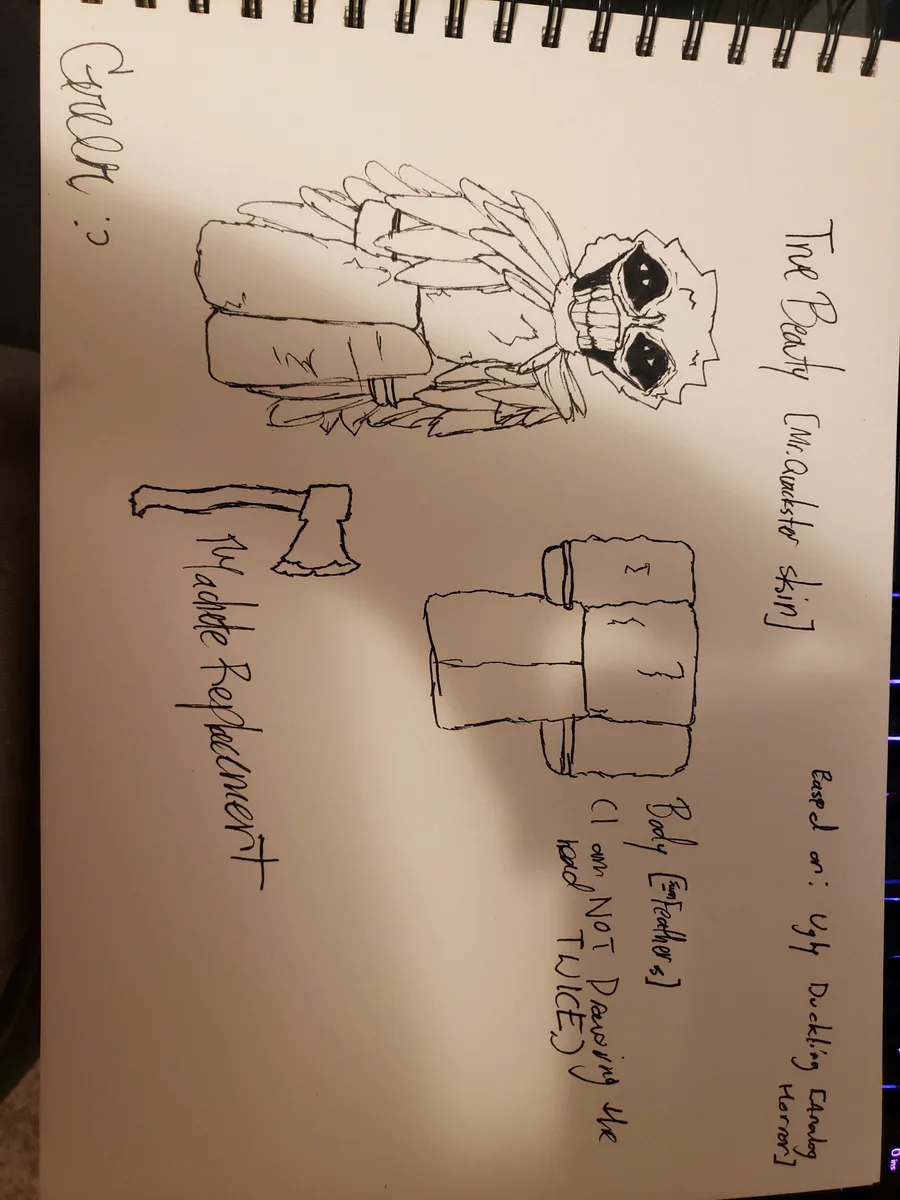 The Beauty [Mr.Quackster skin]
Based on: Ugly Duckling [Analog
Horror]
Body [Feathers]
(I am NOT Drawing the
head TWICE.)
Machete Replacement
Green :)
0 ins